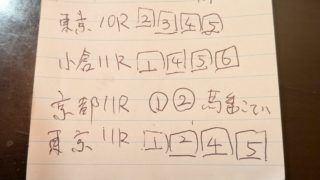 東京 10R 2 3 4 5
小倉 11R 1 4 5 6
京都 11R ① ② 馬番
東京 11R 1 2 4 5